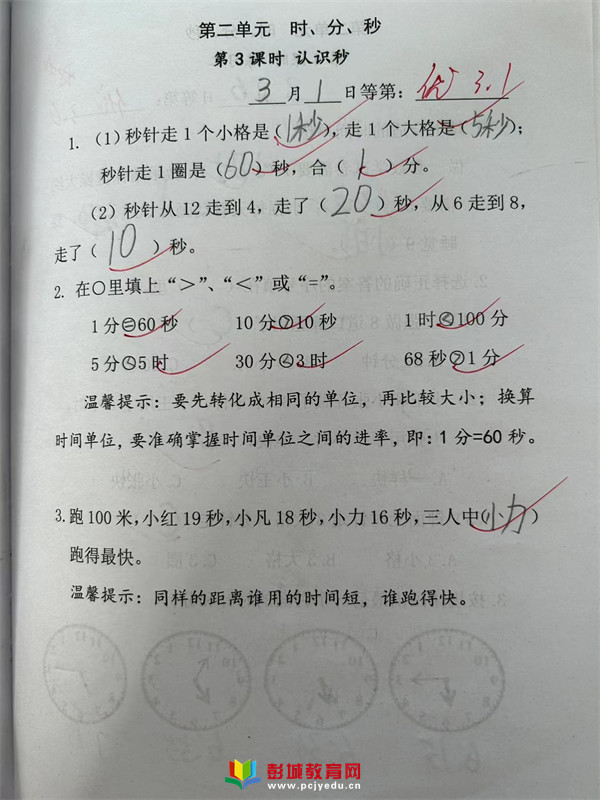 第二单元 时、分、秒
第3课时 认识秒
3月1日等第：优 3.1
1. （1）秒针走1个小格是（1秒），走1个大格是（5秒）；
秒针走1圈是（60）秒，合（1）分。
（2）秒针从12走到4，走了（20）秒，从6走到8，
走了（10）秒。
2. 在○里填上“＞”、“＜”或“=”。
1分=60秒 10分>10秒 1时<100分
5分<5时 30分<3时 68秒>1分
温馨提示：要先转化成相同的单位，再比较大小；换算
时间单位，要准确掌握时间单位之间的进率，即：1分=60秒。
3. 跑100米，小红19秒，小凡18秒，小力16秒，三人中（小力）
跑得最快。
温馨提示：同样的距离谁用的时间短，谁跑得快。
彭城教育网
www.pcjyedu.cn